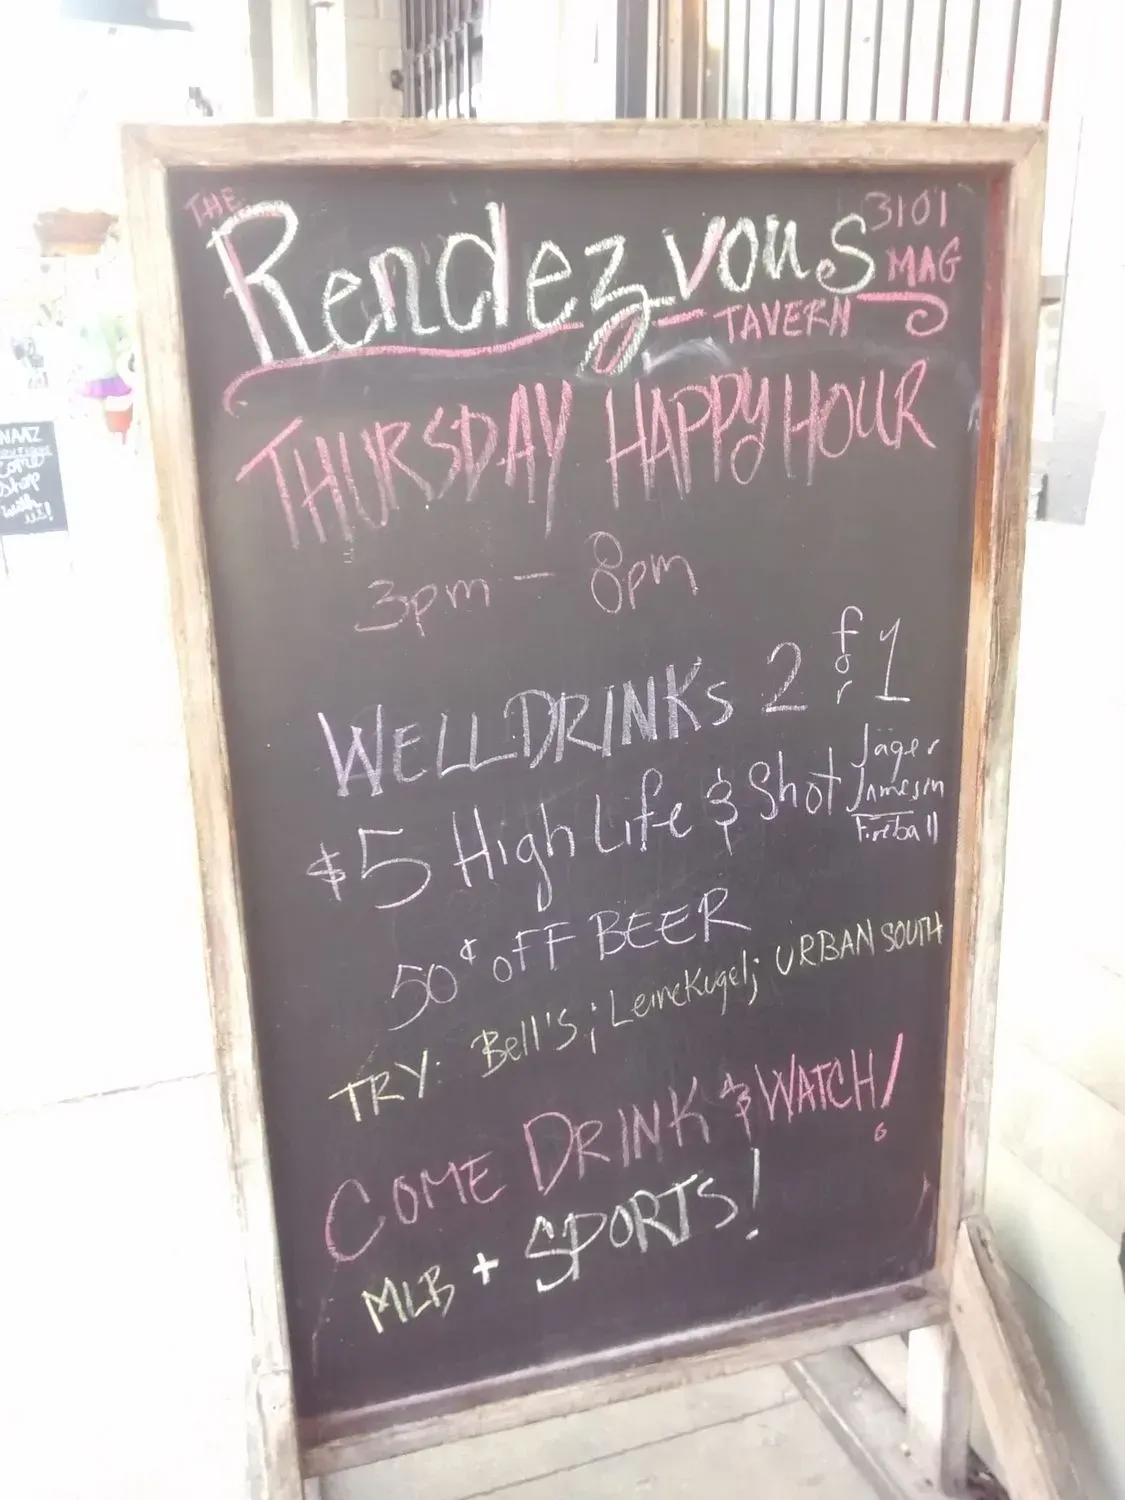 THE Rendezvous 3101 MAG
TAVERN
THURSDAY HAPPY HOUR
3pm - 8pm
WELL DRINKS 2 for 1
$5 High Life & Shot Jager Jameson Fireball
50¢ OFF BEER
TRY: Bell's; Leinekugel; URBAN SOUTH
COME DRINK & WATCH!
MLB + SPORTS!
NAAZ
come
Shop
with
us!